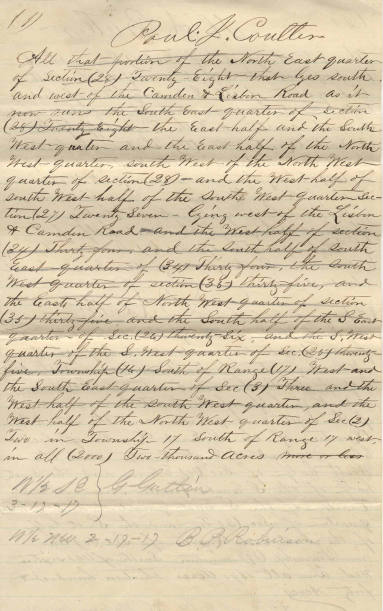 (1)
Paul J. Coulter
All that portion of the North East quarter
of section (28) Twenty-Eight that lyes south
and west of the Camden & Lisbon Road as it
now runs the South East quarter of section
(28) Twenty Eight the East half and the South
West quater and the East half of the North
West quarter, South West of the North West
quarter of section (28) and the West half of
South West half of the South West Quarter Sec-
tion (27) Twenty Seven - lying west of the Lisbon
& Camden Road - and the West half of section
(34) Thirty four, and the South half of South
East quarter of (34) Thirty four, the South
West quarter of section (35) thirty-five, and
the East half of North West quarter of section
(35) thirty five and the South half of the S East
quarter of Sec. (26) twenty-Six. and the S. West
quarter of the S. West quarter of Sec. (25) twenty-
five, Township (16) South of Range (17) West and
the South East quarter of Sec (3) Three and the
West half of the South West quarter, and the
West half of the North West quarter of Sec (2)
Two in Township 17 South of Range 17 west-
in all (2000) Two-thousand Acres more or less
3-17-17
2-17-17 Robinson